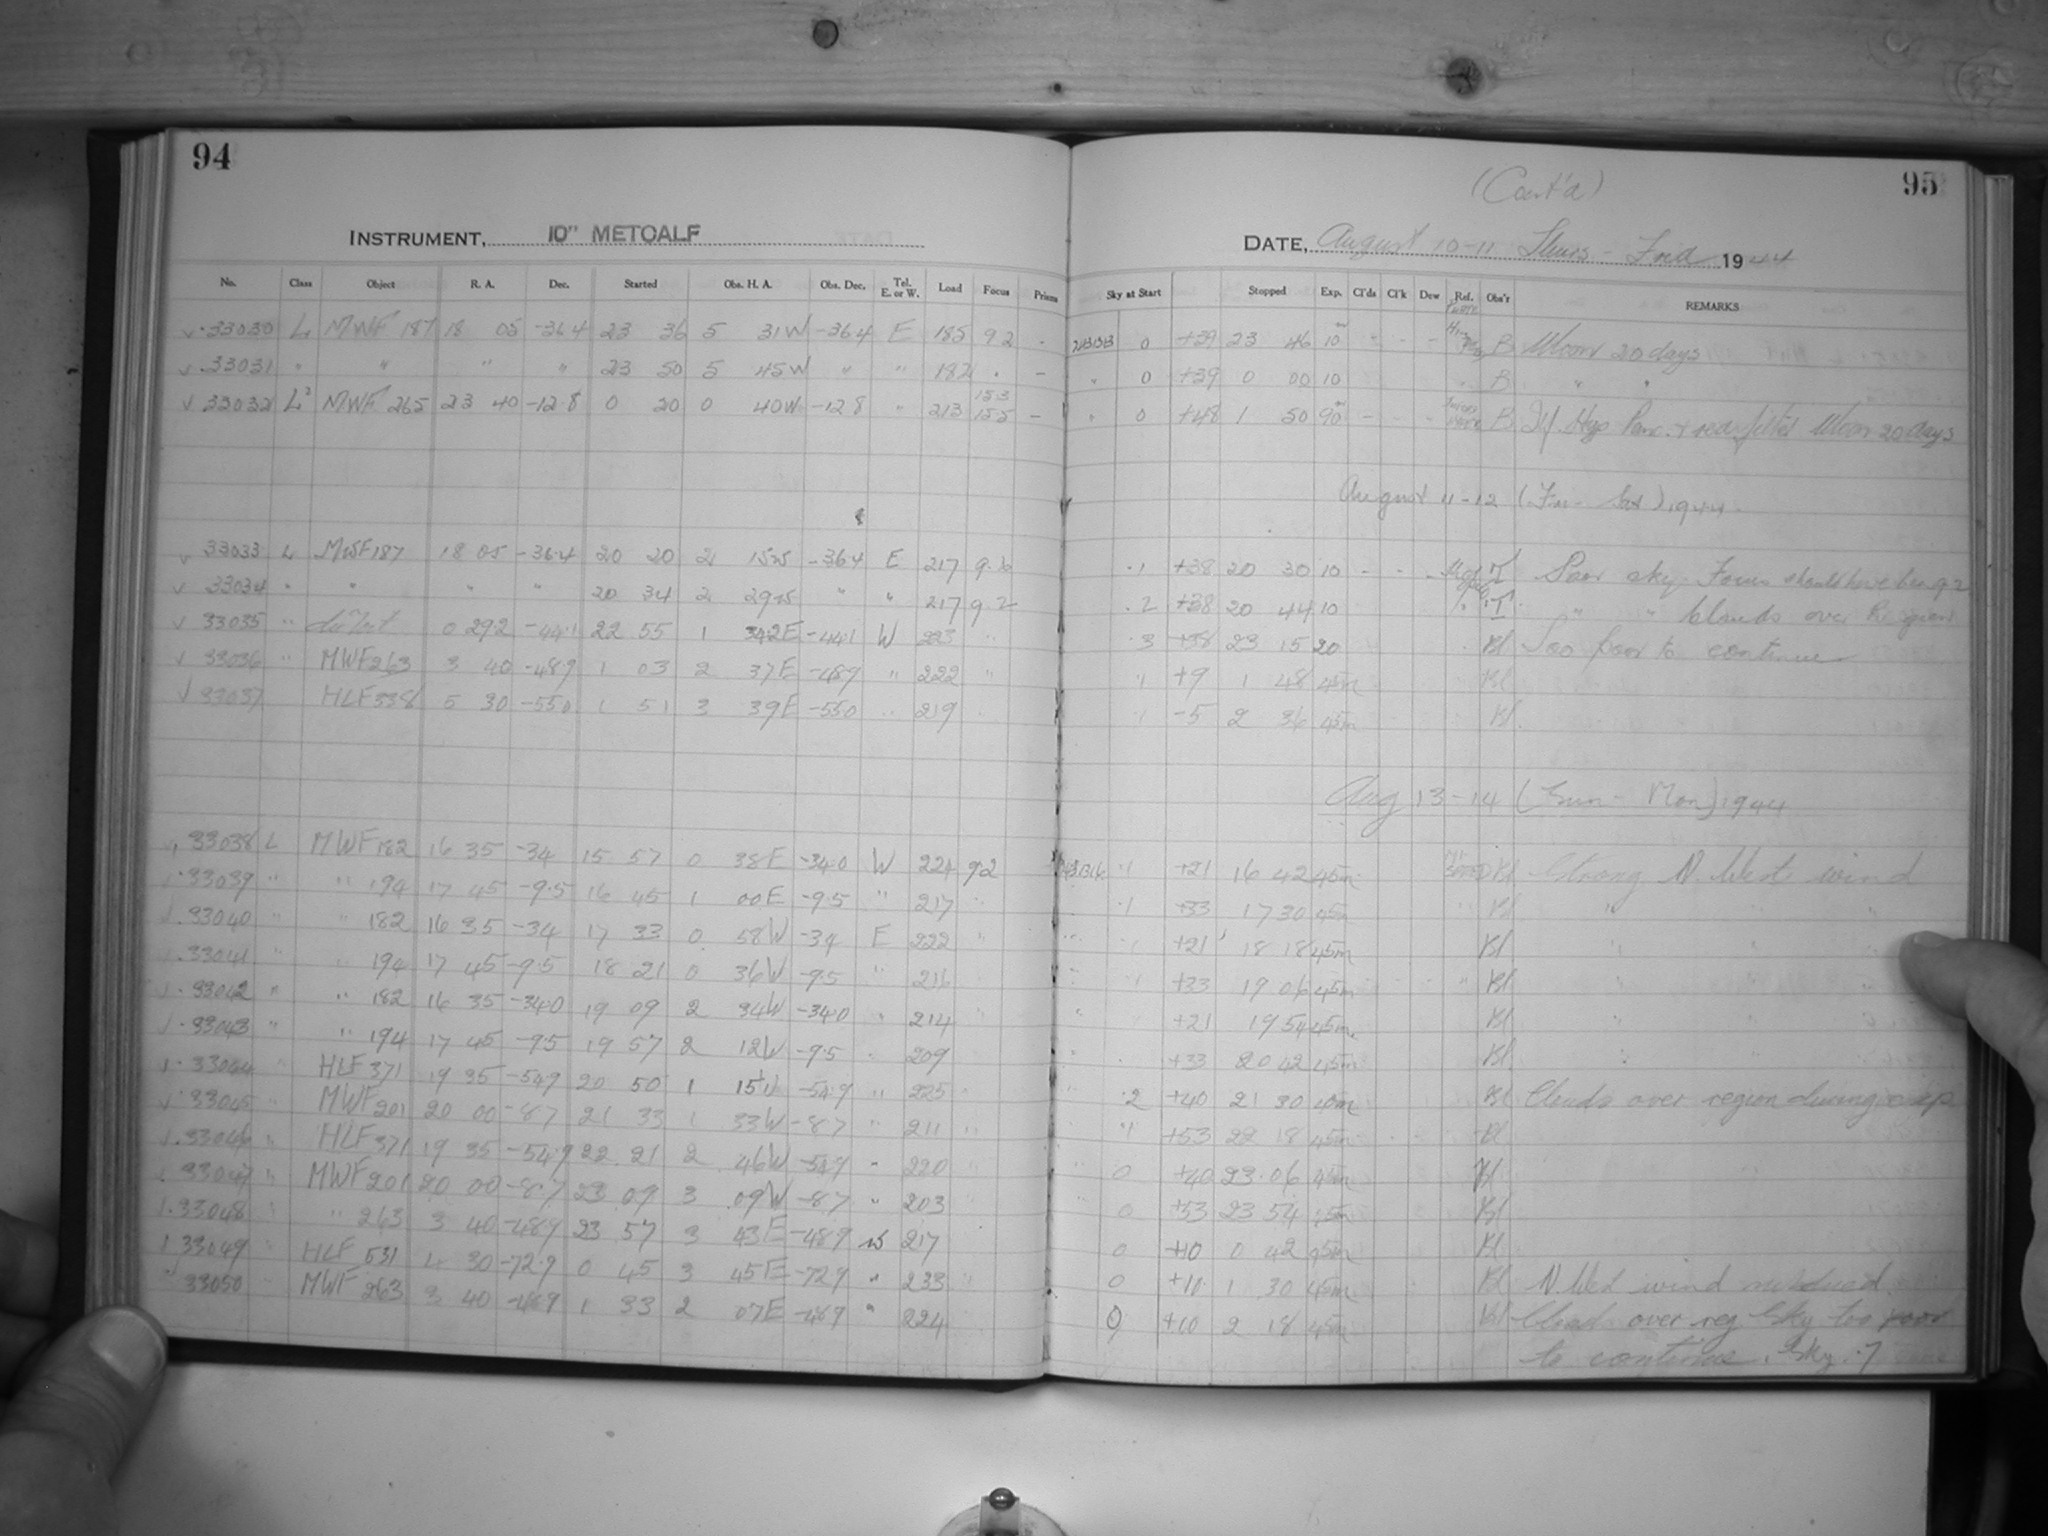 94
INSTRUMENT, 10" METCALF
No. Class Object R. A. Dec. Started Obs. H. A. Obs. Dec. Tel. E. or W. Load Focus Prisms
33030 L MWF 187 18 05 -36.4 23 36 5 31W -36.4 E 185 9.2 -
33031 " " " " 23 50 5 45W " " 182 . -
33032 L² MWF 265 23 40 -12.8 0 20 0 40W -12.8 " 213 15.5 -
33033 L MWF187 18 05 -36.4 20 20 2 15W -36.4 E 217
33034 " " " " 20 34 2 29W " " 217 9.2
33035 " 0 29.2 -44.1 22 55 1 34.2E -44.1 W 223 "
33036 " MWF263 3 40 -48.9 1 03 2 37E -48.9 " 222 "
33037 HLF338 5 30 -55.0 1 51 3 39E -55.0 " 219
33038 L MWF182 16 35 -34 15 57 0 38E -34.0 W 224 9.2
33039 " " 194 17 45 -9.5 16 45 1 00E -9.5 " 217 "
33040 " " 182 16 35 -34 17 33 0 58W -34 E 222 "
33041 " " 194 17 45 -9.5 18 21 0 36W -9.5 " 216
33042 " " 182 16 35 -34.0 19 09 2 34W -34.0 " 214 "
33043 " " 194 17 45 -9.5 19 57 2 12W -9.5 " 209
33044 HLF371 19 35 -54.9 20 50 1 15W -54.9 " 225
33045 " MWF201 20 00 -8.7 21 33 1 33W -8.7 " 211 "
33046 " HLF371 19 35 -54.9 22 21 2 46W -54.9 " 220
33047 " MWF201 20 00 -8.7 23 09 3 09W -8.7 " 203
33048 " " 263 3 40 -48.9 23 57 3 43E -48.9 W 217
33049 " HLF 531 4 30 -72.9 0 45 3 45E -72.9 " 233 "
33050 MWF 263 3 40 -48.9 1 33 2 07E -48.9 " 224
(Cont'd)
95
DATE, August 10-11 Thurs - Frid 1944
Sky at Start Stopped Exp. Cl'ds Cl'k Dew Ref. Obs'r REMARKS
0 +39 23 46 10 B Moon 20 days
" 0 +39 0 00 10 B " "
" 0 +48 1 50 90 B Hyp Panc. + red filter Moon 20 days
August 11-12 (Fri - Sat) 1944
.1 +38 20 30 10 - - - T Poor sky. Focus should have been 9.2
.2 +38 20 44 10 T " " Clouds over Region
.3 +38 23 15 20 Bl Too poor to continue
.1 +9 1 48 45m Bl
-5 2 36 45m Bl
Aug 13-14 (Sun - Mon) 1944
.1 +21 16 42 45m Bl Strong N. West wind
.1 +33 17 30 45m Bl " "
+21 18 18 45m Bl " "
+33 19 06 45m Bl " "
+21 19 54 45m Bl "
+33 20 42 45m Bl "
.2 +40 21 30 40m Bl Clouds over region during exp
+53 22 18 45m Bl
0 +40 23 06 45m Bl
0 +53 23 54 45m Bl
0 +10 0 42 45m Bl
0 +10 1 30 45m Bl N. West wind
0 +10 2 18 45m Bl Clouds over reg Sky too poor
to continue. Sky .7